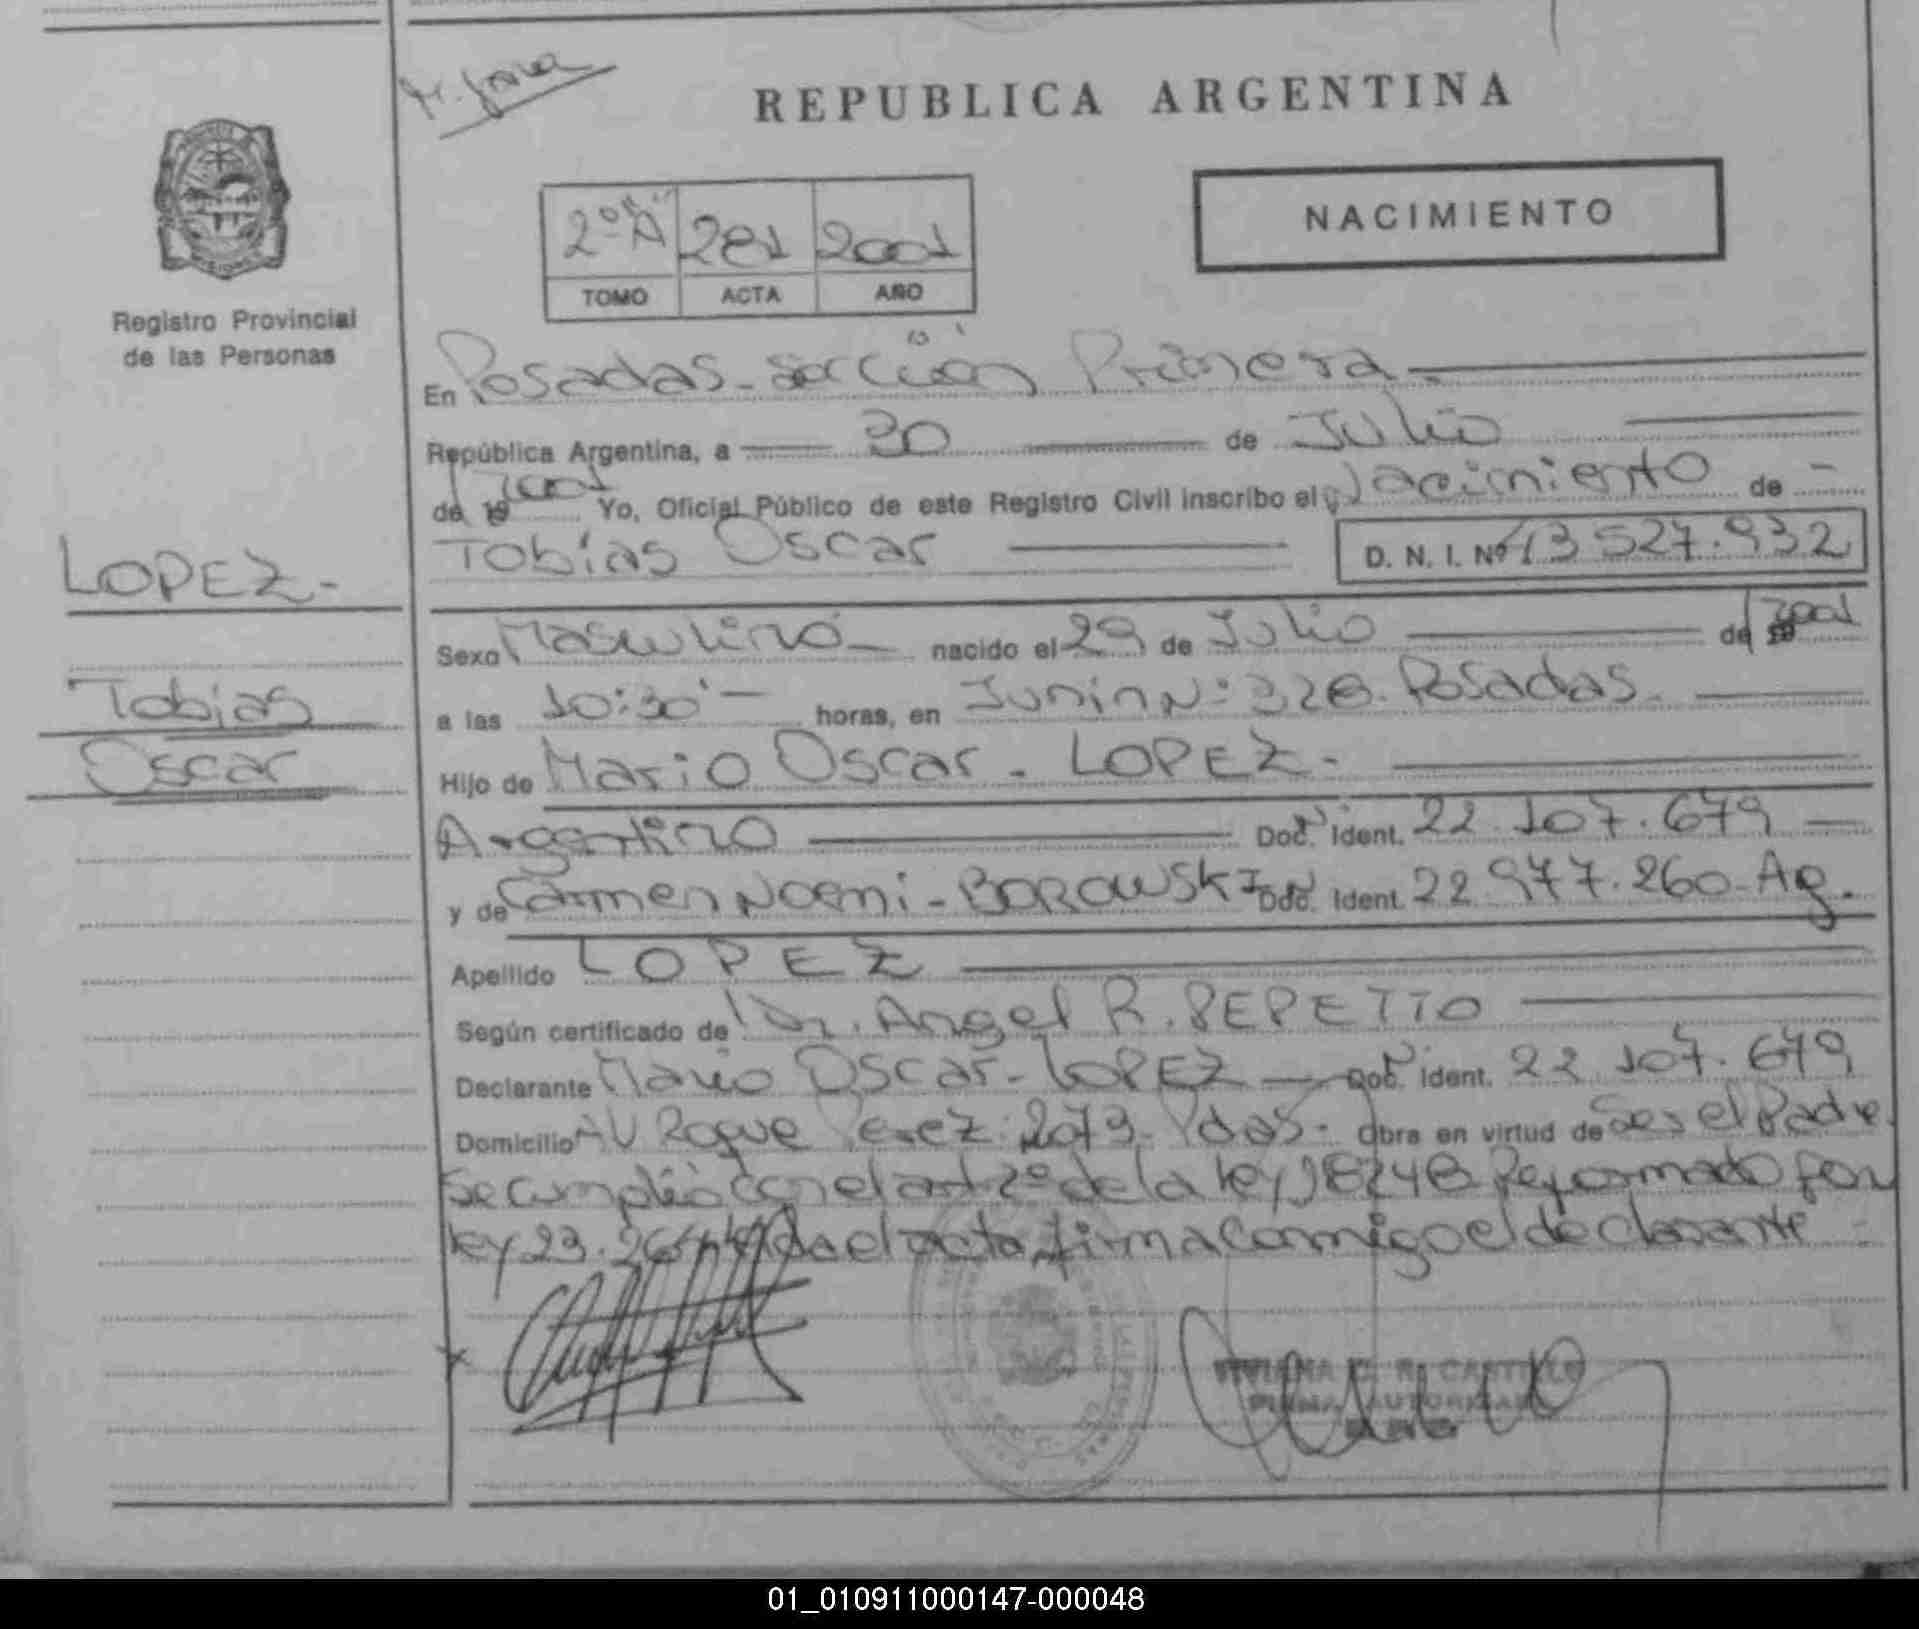 REPUBLICA ARGENTINA
NACIMIENTO
2º "A" 281 2001
TOMO ACTA AÑO
Registro Provincial
de las Personas
En Posadas - Sección Primera
República Argentina, a 30 de Julio
de 19 2001 Yo, Oficial Público de este Registro Civil inscribo el Nacimiento de
Tobías Oscar D. N. I. Nº 43 527.932
LOPEZ -
Tobias
Oscar
Sexo Masculino nacido el 29 de Julio de 19 2001
a las 10:30' horas, en Junin Nº 328. Posadas
Hijo de Mario Oscar - LOPEZ -
Argentino Doc. Ident. 22.107.679
y de Carmen Noemi - BOROWSKI Doc. Ident. 22.977.260 - Ag.
Apellido LOPEZ
Según certificado de Dr. Angel R. REPETTO
Declarante Mario Oscar - LOPEZ Doc. Ident. 22.107.679
Domicilio AV Roque Perez 2079 - Pdas - Obra en virtud de Ser el Padre
Se cumplió con el art 2º de la ley 18248 Reformado por
ley 23.264 el acta firma conmigo el declarante
VIVIANA C. R. CASTILLO
FIRMA AUTORIZADA
01_010911000147-000048